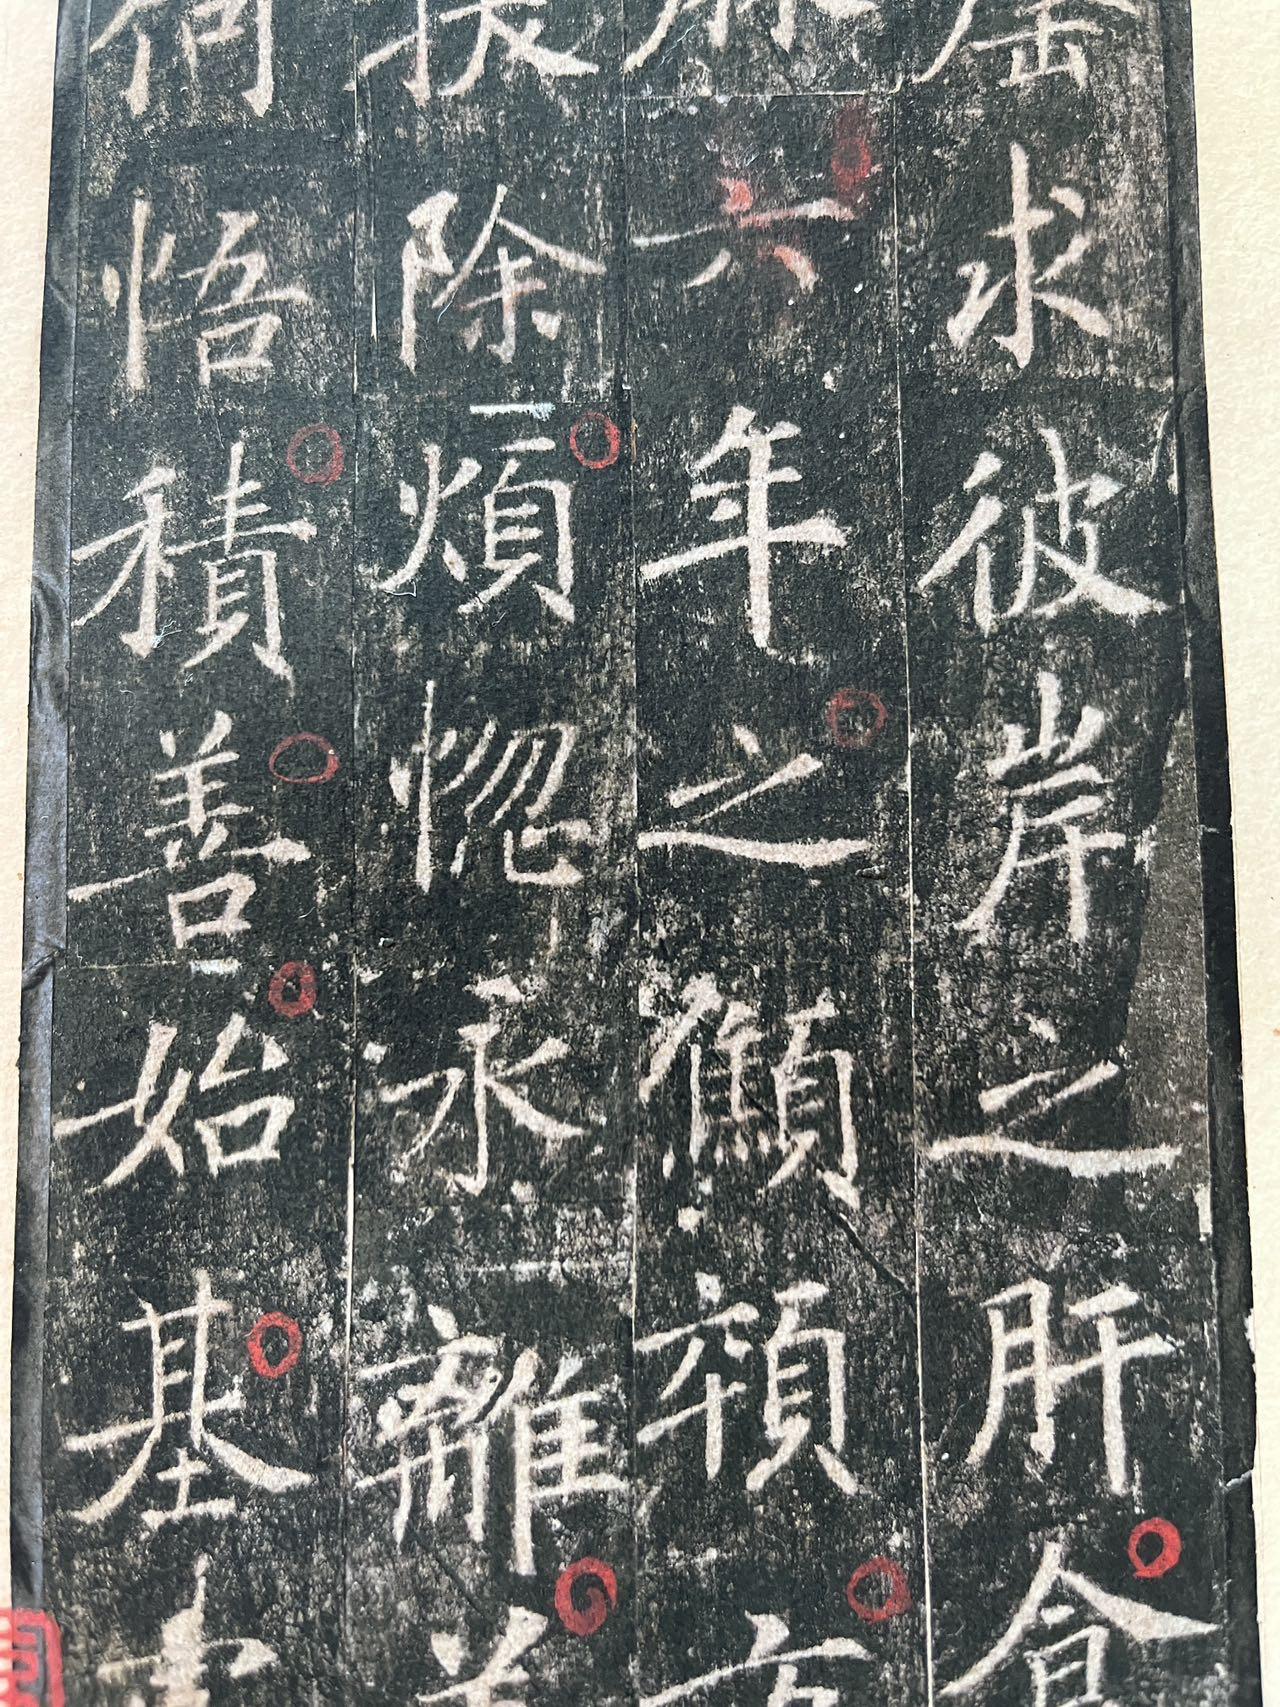 求彼岸之肝食
六年之顦顇
除煩惚永離
悟積善始基